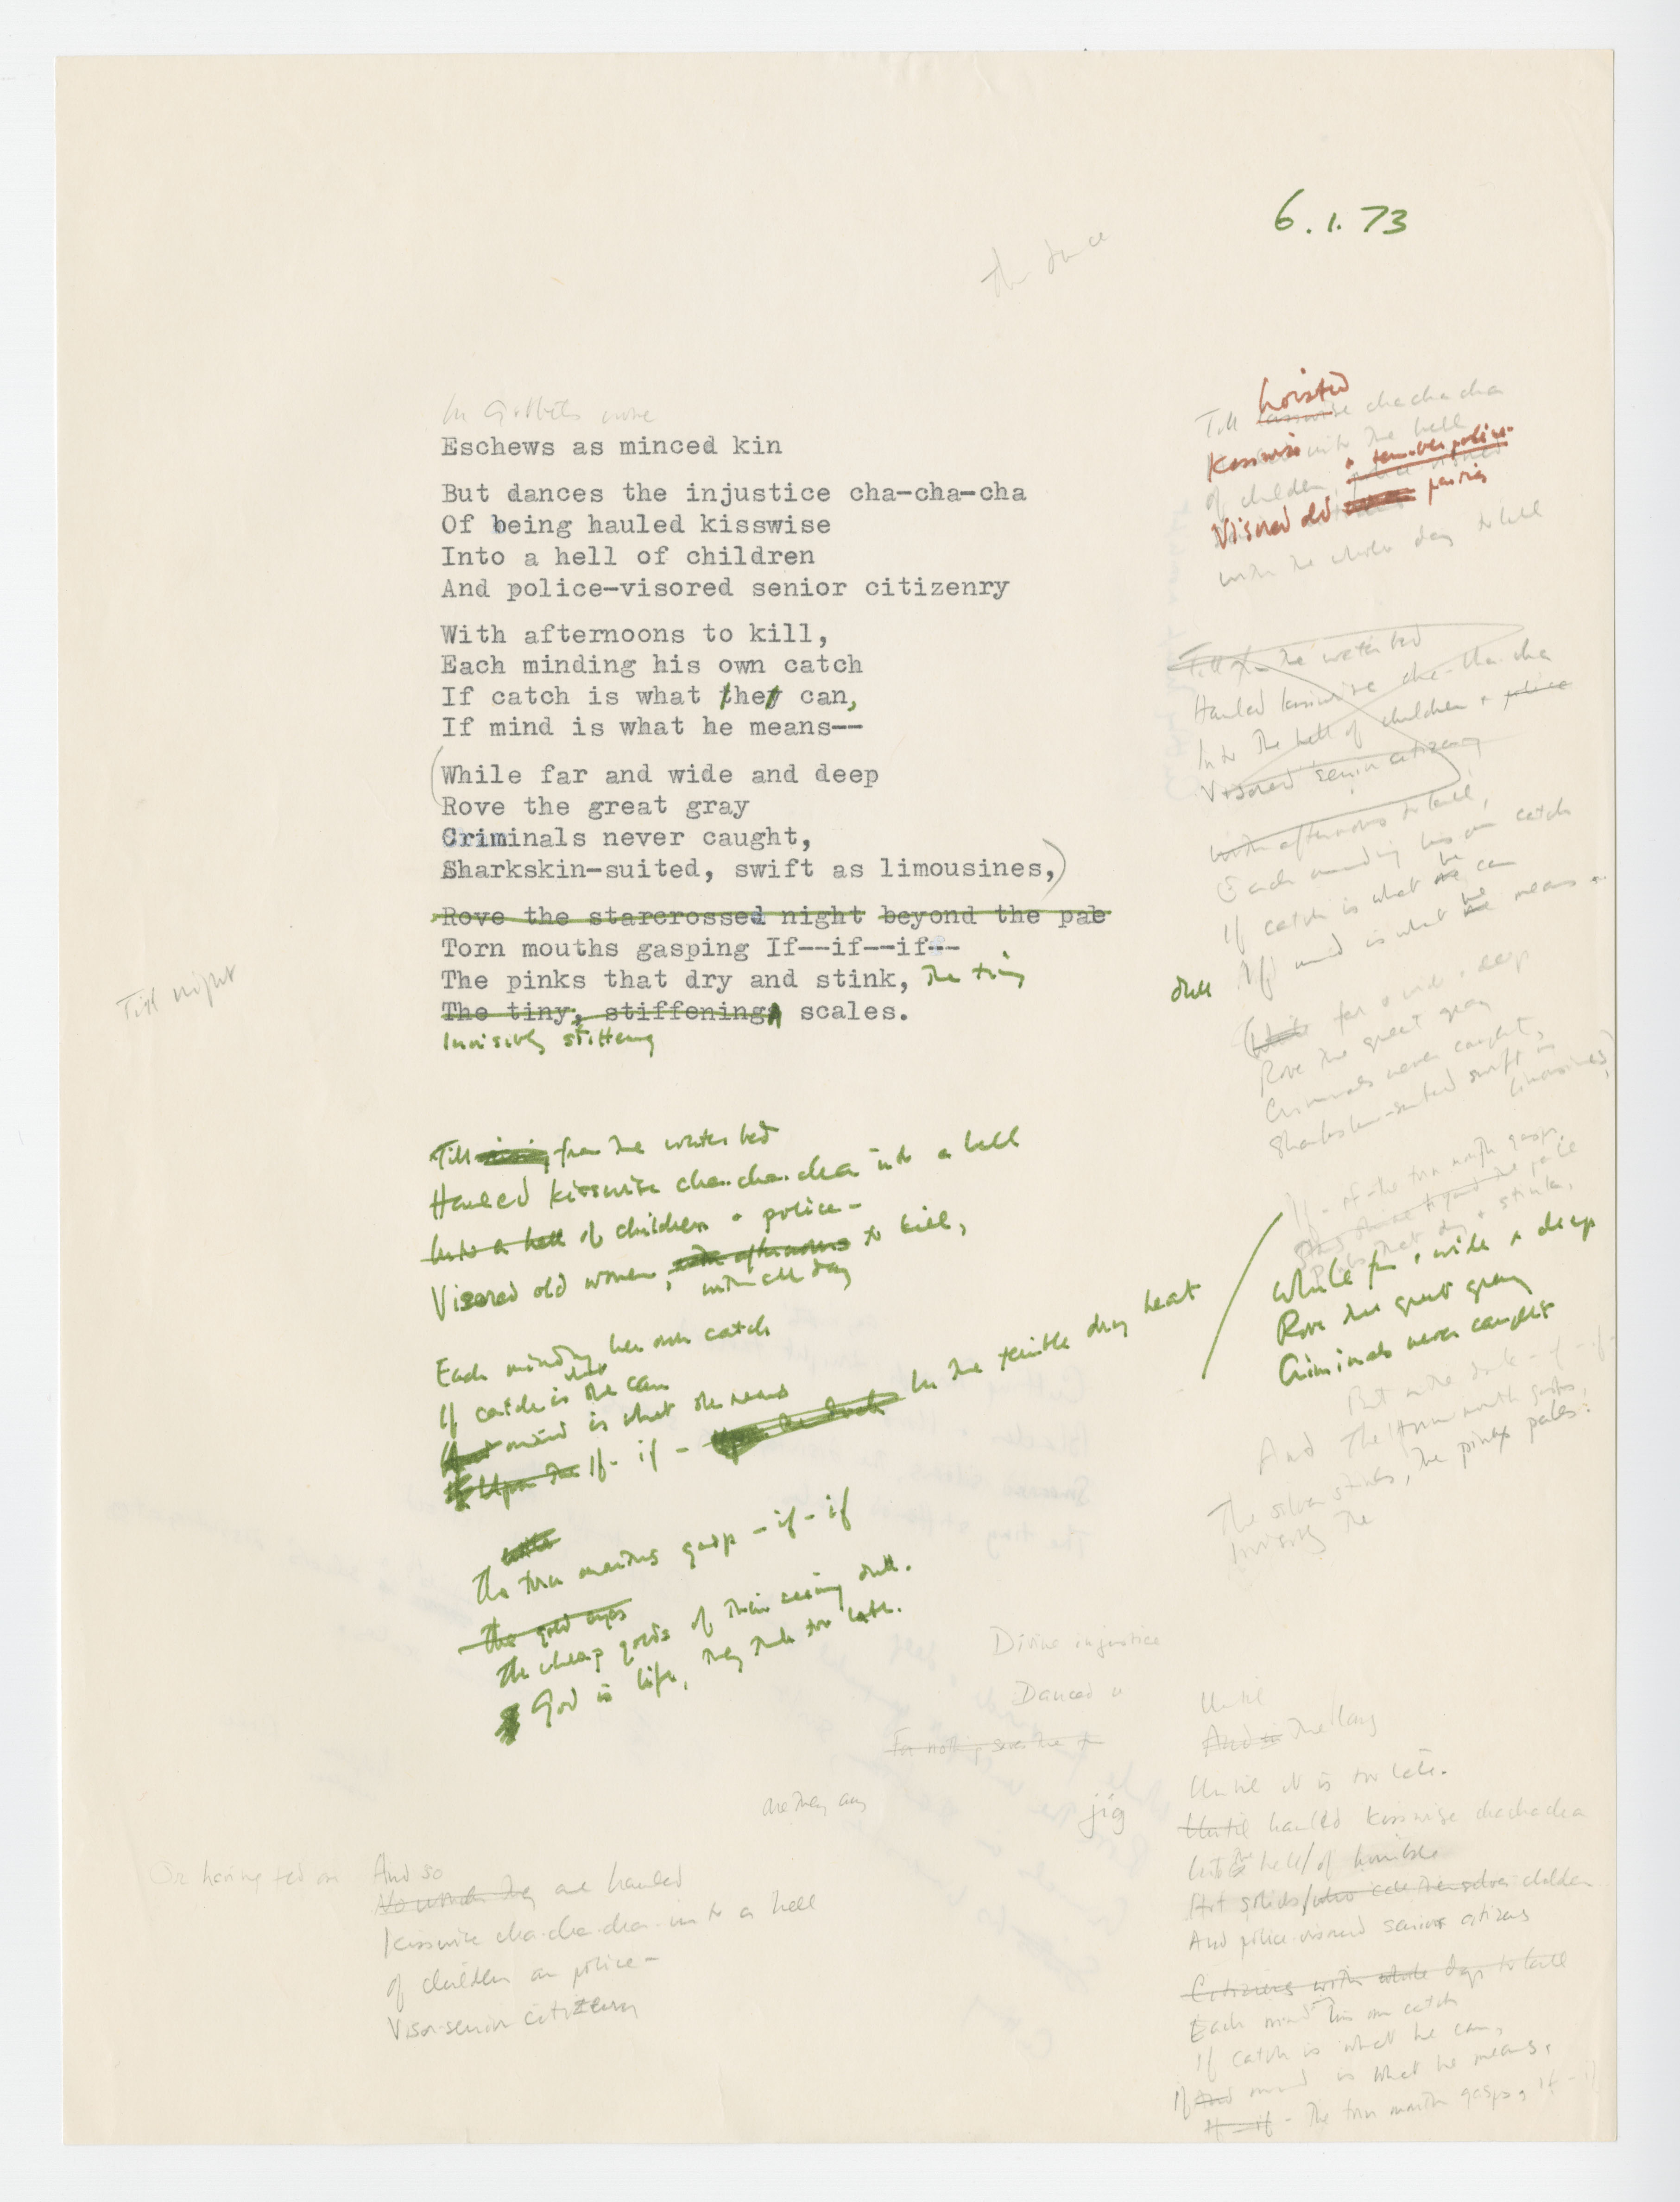 6.1.73
the dance
In
Eschews as minced kin
But dances the injustice cha-cha-cha
Of being hauled kisswise
Into a hell of children
And police-visored senior citizenry
With afternoons to kill,
Each minding his own catch
If catch is what he can,
If mind is what he means--
(While far and wide and deep
Rove the great gray
Criminals never caught,
Sharkskin-suited, swift as limousines,)
Rove the starcrossed night beyond the pale
Torn mouths gasping If--if--if--
The pinks that dry and stink, the tiny
The tiny, stiffening scales.
Invisibly stiffening
Till night
Till from the water bed
Hauled kisswise cha.cha.cha into a hell
Into a hell of children + police-
Visored old women, with afternoons to kill,
with all day
Each minding her own catch
If catch is what she can
And mind is what she means
Upon the If- if - In the terrible dry heat
The torn mouths gasp - if - if
The gold eyes
The cheap golds of their seeing dull.
God is life, they
too late.
hoisted
Till kisswise chachacha
Kisswise into the hell
of children, + ten-ber police-
Visored old parties
with the whole day to kill
Till from the water bed
Hauled kisswise cha-cha-cha
Into the hell of children + police
Visored senior citizenry
With afternoons to kill,
Each minding his own catch
If catch is what he can
If mind is what he means
dull
(While far + wide + deep
Rove the great gray
Criminals never caught,
Sharkskin-suited swift as
limousines)
If - if - the torn mouth gasps,
pinks that dry + stink,
While far + wide + deep
Rove the great gray
Criminals never caught
But - if - if -
And the torn mouth gasps,
The silver stinks, the pinks pales.
Invisibly the
Divine injustice
Danced
For nothing saves the
are they any
jig
Or having fed on
And so
No wonder they are hauled
kisswise cha.cha.cha. into a hell
of children on police-
Visor senior citizenry
Until
And in the
Until it is too late.
Until hauled kisswise chachacha
Into the hell/of horrible
children
And police-visored senior citizens
Citizens with whole days to kill
Each mind his own catch
If catch is what he can,
If And mind is what he means,
If - if - The torn mouth gasps, if - if